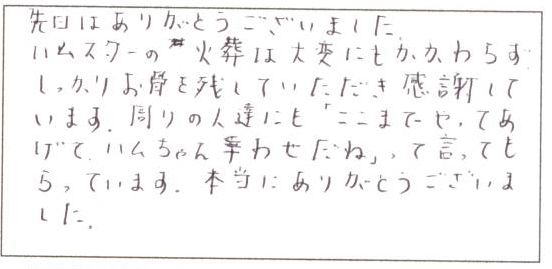 先日はありがとうございました。
ハムスターの火葬は大変にもかかわらず
しっかりお骨を残していただき感謝して
います。周りの人達にも「ここまでやってあ
げて、ハムちゃん幸わせだね」って言っても
らっています。本当にありがとうございま
した。